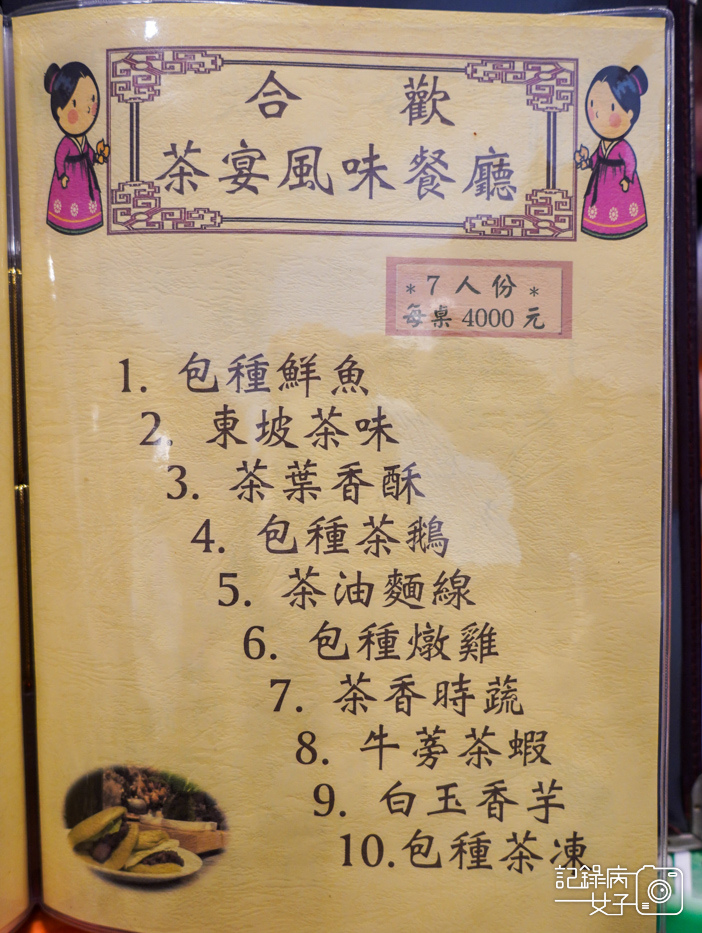 合歡
茶宴風味餐廳
*7人份*
每桌4000元
1. 包種鮮魚
2. 東坡茶味
3. 茶葉香酥
4. 包種茶鵝
5. 茶油麵線
6. 包種燉雞
7. 茶香時蔬
8. 牛蒡茶蝦
9. 白玉香芋
10.包種茶凍
記錄病
女子